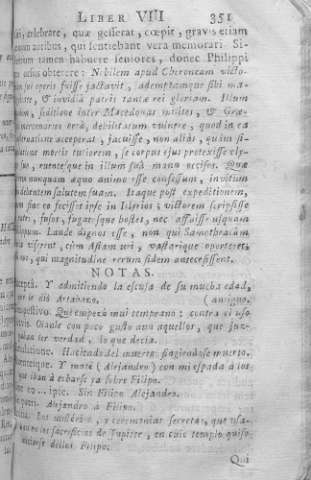 LIBER VIII 351
celebrare, quæ gesserat, cœpit, gravis etiam
eorum auribus, qui sentiebant vera memorari. Si-
lentium tamen habuere seniores, donec Philippi
res orsus obterere: Nobilem apud Cheroneam victo-
riam sui operis fuisse jactavit, ademptamque sibi ma-
& invidia patri tantæ rei gloriam. Illum
seditione inter Macedonas milites, & Græ-
mercenarios orta, debilitatum vulnere, quod in ea
acceperat, jacuisse, non aliàs, quàm si-
mortis tutiorem, se corpus ejus protexisse cly-
ruentesque in illum suâ manu occisos. Quæ
nunquam æquo animo esse confessum, invitum
debentem salutem suam. Itaque post expeditionem,
sine eo fecisset ipse in Illyrios; victorem scripsisse
fusos, fugatosque hostes, nec affuisse usquam
Philippum. Laude dignos esse, non qui Samothracum
viserent, cùm Asiam uri, vastarique oporteret,
qui magnitudine rerum fidem antecessissent.
NOTAS.
Y admitiendo la escusa de su mucha edad,
le dió Artabazo. (amigo.
Que empezò mui temprano: contra el uso
Oianle con poco gusto aun aquellos, que juz-
ser verdad, lo que decia.
Haciendo del muerto: fingiendose muerto.
Y matè (Alejandro) con mi espada à los
que iban à echarse ya sobre Filipo.
ipse. Sin Filipo Alejandro.
patri. Alejandro à Filipo.
Los mistérios, y ceremonias secretas, que usa-
los sacrificios de Jupiter, en cuio templo quiso
Filipo.
Qui